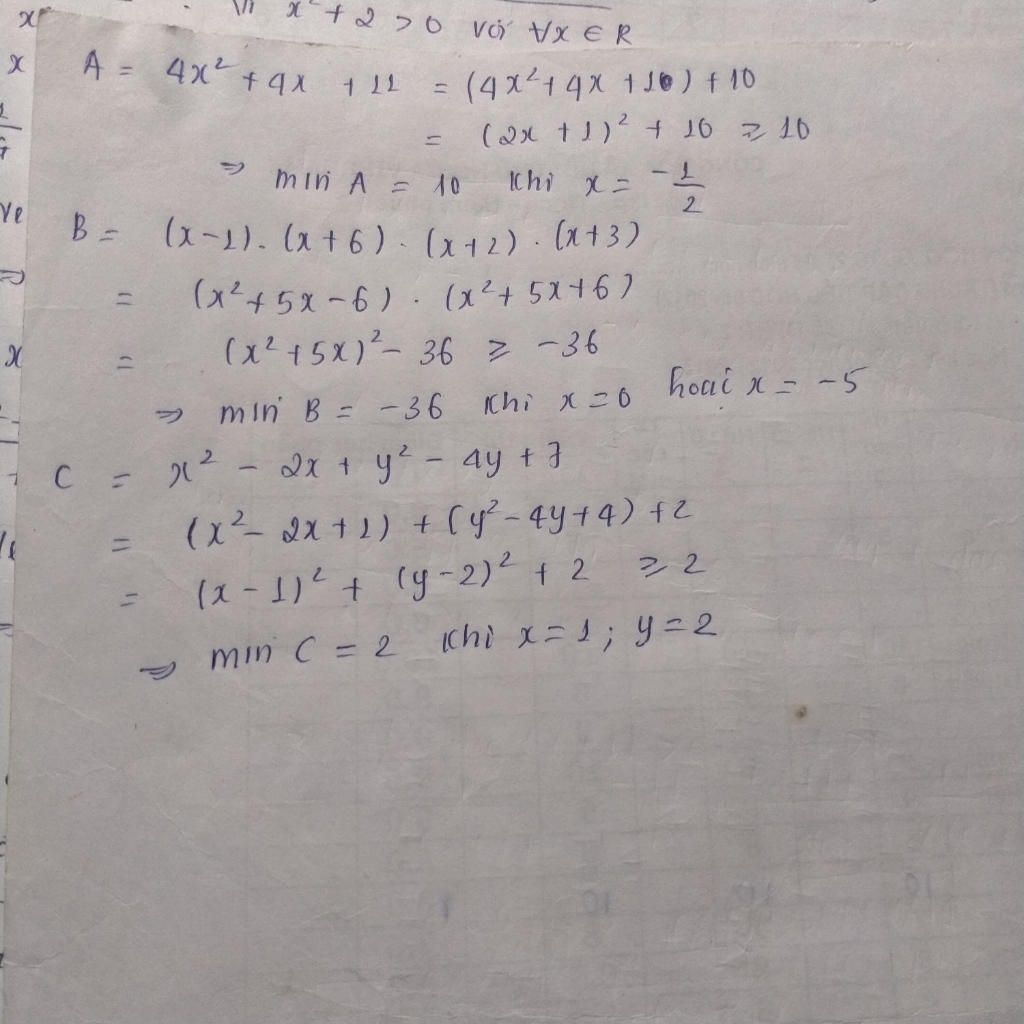 x² + 2 > 0 với ∀x ∈ R
A = 4x² + 4x + 11 = (4x² + 4x + 10) + 10
= (2x + 1)² + 10 ≥ 10
⇒ min A = 10 khi x = -1/2
B = (x-1). (x+6). (x+2). (x+3)
= (x² + 5x - 6). (x² + 5x + 6)
= (x² + 5x)² - 36 ≥ -36
⇒ min B = -36 khi x = 0 hoặc x = -5
C = x² - 2x + y² - 4y + 7
= (x² - 2x + 1) + (y² - 4y + 4) + 2
= (x - 1)² + (y - 2)² + 2 ≥ 2
⇒ min C = 2 khi x = 1; y = 2